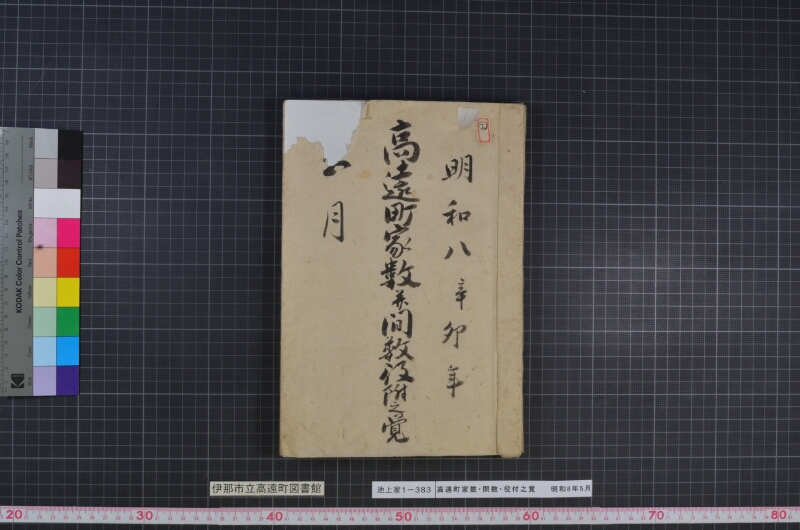 明和八辛卯年
高遠町家数并間数役附之覚
月
伊那市立高遠町図書館
池上家1-383 高遠町家数・間数・役付之覚 明和8年5月
KODAK Color Control Patches
20 30 40 50 60 70 80